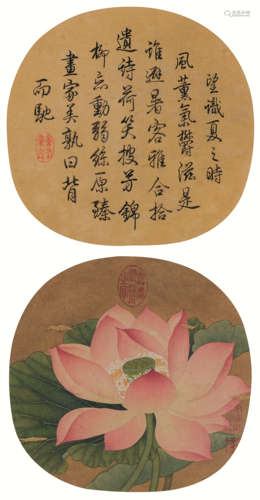 望識夏之時
風薰氣鬱滋是
誰避暑客雅合拾
遺詩荷笑搜芳錦
柳忘動弱絲原臻
畫家美孰曰背
而馳